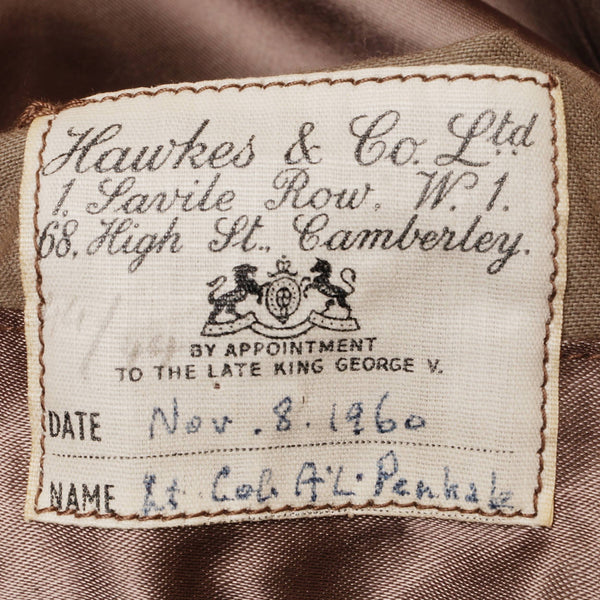 Hawkes & Co. Ltd
1, Savile Row, W.1.
68, High St., Camberley.
BY APPOINTMENT
TO THE LATE KING GEORGE V.
DATE Nov. 8. 1960
NAME Lt Col. A.L. Penhale